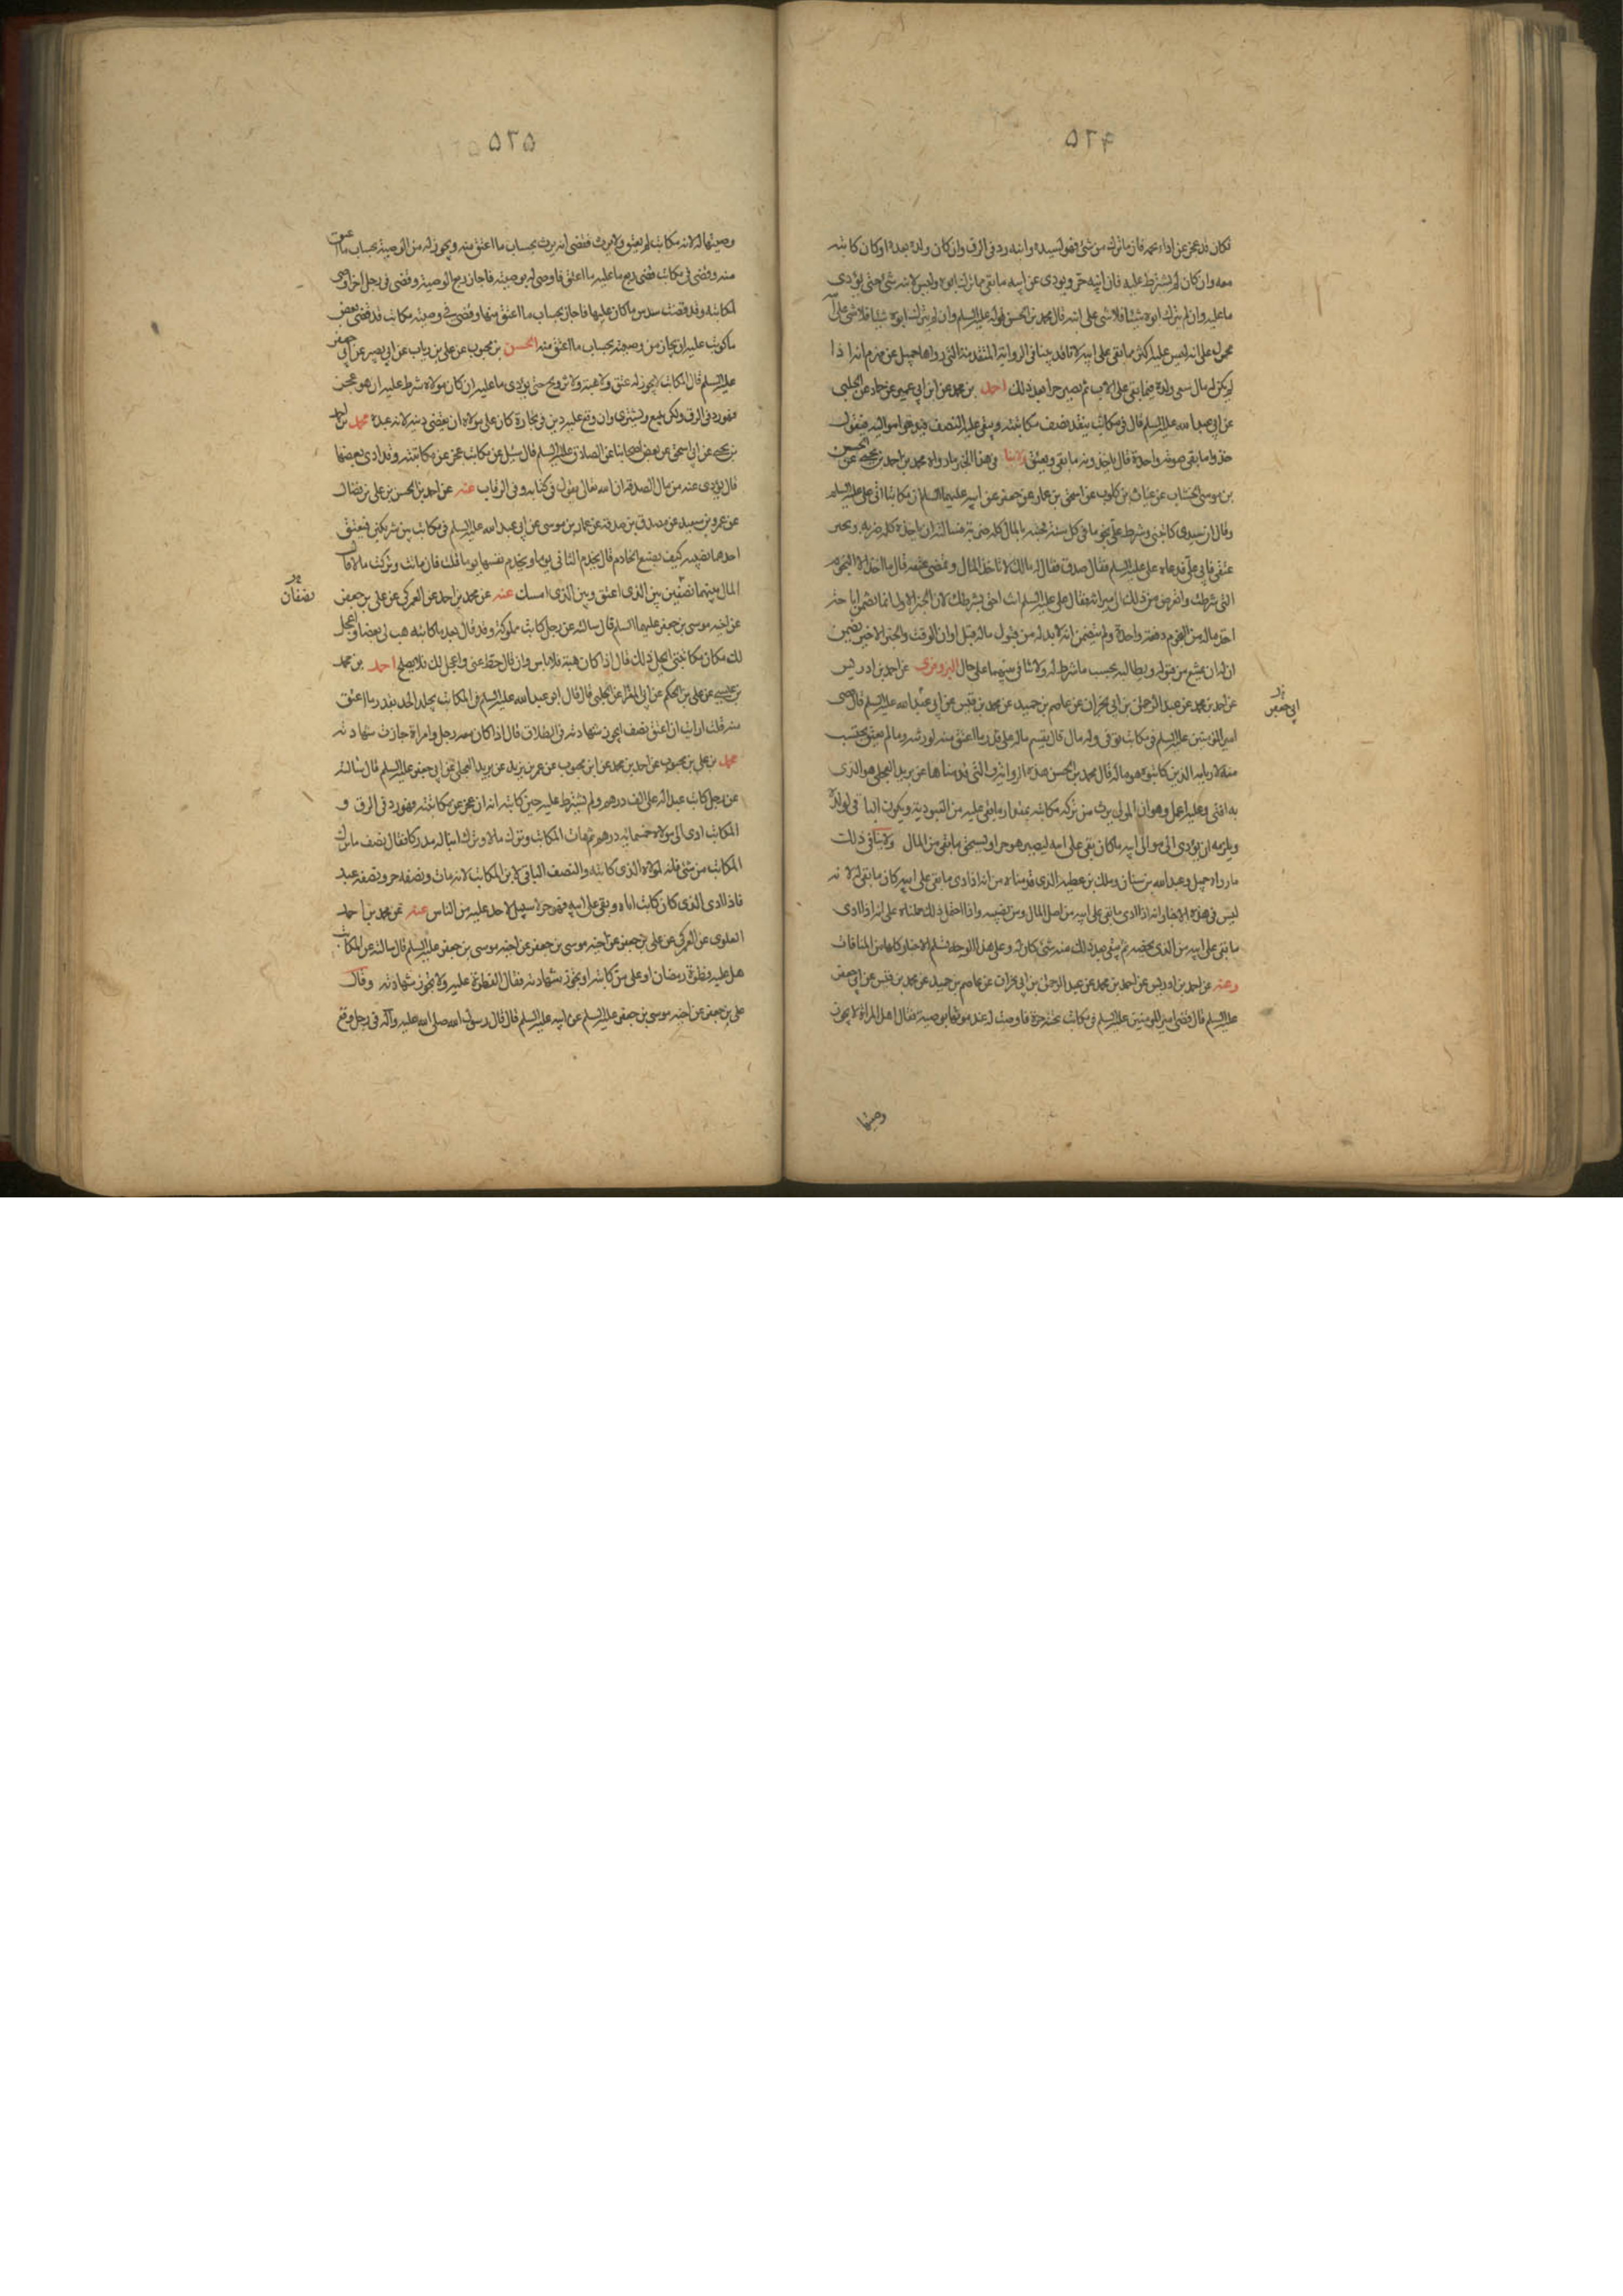 ٥٢۴
فكان قد عجز عن اداء نجمه فان ما ترك من شئ فهو لسيده وابنه رد في الرق وان كان ولده بعده او كان كاتبه
معه وان كان لم يشترط عليه فان ابنه حر ويؤدى عن ابيه ما بقى مما ترك ابوه وليس لابنه شئ حتى يؤدى
ما عليه وان لم يترك ابوه شيئا فلا شئ على ابنه قال محمد بن الحسن قوله عليه السلم وان لم يترك ابوه شيئا فلا شئ على ابنه
محمول على انه ليس عليه اكثر مما بقى على ابيه لانا قد بينا في الرواية المتقدمة التى رواها جميل عن مهزم انه اذا
لم يكن له مال سعى ولده فيما بقى على الاب ثم يصير حرا بعد ذلك احمد بن محمد عن ابن ابي عمير عن حماد عن الحلبي
عن ابي عبد الله عليه السلم قال في مكاتب ينقد نصف مكاتبته ويبقى عليه النصف فيدعوا مواليه فيقول
خذوا ما بقى ضربة واحدة قال ياخذون ما بقى ويعتق ولا ينافي هذا الخبر ما رواه محمد بن احمد بن يحيى عن الحسن
بن موسى الخشاب عن غياث بن كلوب عن اسحق بن عمار عن جعفر عن ابيه عليهما السلم ان مكاتبا اتى علي عليه السلم
وقال ان سيدى كاتبنى وشرط على نجوما في كل سنة فجئته بالمال كله ضربة فسالته ان ياخذه كله ضربة ويجيز
عتقى فابى على فدعاه علي عليه السلم فقال صدق فقال له مالك لا تاخذ المال وتمضى عتقه قال ما اخذ الا النجوم
التى شرطت واتعرض من ذلك الى ميراثه فقال علي عليه السلم انت احق بشرطك لان الخبر الاول انما تضمن اباحة
اخذ ماله من النجوم دفعة واحدة ولم يتضمن انه لابد له من قبول ماله قبل اوان الوقت والخبر الاخير يضمن
ان له ان يمتنع من قبوله ويطالبه بحسب ما شرط له ولا تنافي بينهما على حال البزوفرى عن احمد بن ادريس
عن احمد بن محمد عن عبد الرحمن بن ابي نجران عن عاصم بن حميد عن محمد بن قيس عن ابي عبد الله عليه السلم قال قضى
ابي جعفر
امير المؤمنين عليه السلم في مكاتب توفى وله مال قال يقسم ماله على قدر ما اعتق منه لورثته وما لم يعتق يحتسب
منه لاربابه الذين كاتبوه هو ماله قال محمد بن الحسن هذه الرواية التى قدمناها عن بريد العجلي هو الذى
به افتى وعليه اعمل وهو ان المولى يرث من تركة مكاتبه بمقدار ما بقى عليه من العبودية ويكون الباقي لولده
ويلزمه ان يؤدى الى موالى ابيه ما كان بقى على ابيه ليصير هو حرا ويستحق ما بقى من المال ولا ينافي ذلك
ما رواه جميل وعبد الله بن سنان وملك بن عطية الذى قدمناه من انه اذا ادى ما بقى على ابيه كان ما بقى له لانه
ليس في هذه الاخبار انه اذا ادى ما بقى على ابيه من اصل المال او من نصيبه واذا احتمل ذلك حملناه على انه اذا ادى
ما بقى على ابيه من الذى يخصه ثم يبقى بعد ذلك منه شئ كان له وعلى هذا الوجه تسلم الاخبار كلها من المنافات
وعنه عن احمد بن ادريس عن احمد بن محمد عن عبد الرحمن بن ابي نجران عن عاصم بن حميد عن محمد بن قيس عن ابي جعفر
عليه السلم قال قضى امير المؤمنين عليه السلم في مكاتب تحته حرة فاوصت له عند موتها بوصية فقال اهل المراة لا يجوز
وصيتها
٥٢٥
وصيتها له لانه مكاتب لم يعتق ولا يرث فقضى انه يرث بحساب ما اعتق منه ويجوز له من الوصية بحساب ما اعتق
منه وقضى في مكاتب قضى ربع ما عليه فاوصى له بوصية فاجاز ربع الوصية وقضى في رجل حر اوصى
لمكاتبته وقد قضت سدس ما كان عليها فاجاز بحساب ما اعتق منها وقضى في وصية مكاتب قد قضى بعض
ما كوتب عليه ان يجاز من وصيته بحساب ما اعتق منه الحسن بن محبوب عن علي بن رياب عن ابي بصير عن ابي جعفر
عليه السلم قال المكاتب لا يجوز له عتق ولا هبة ولا تزويج حتى يؤدى ما عليه ان كان مولاه شرط عليه ان هو عجز
فهو رد في الرق ولكن يبيع ويشترى وان وقع عليه دين في تجارة كان على مولاه ان يقضى دينه لانه عبده محمد بن احمد
بن يحيى عن ابي اسحق عن بعض اصحابنا عن الصادق عليه السلم قال سئل عن مكاتب عجز عن مكاتبته وقد ادى بعضها
قال يؤدى عنه من مال الصدقة ان الله تعالى يقول في كتابه وفي الرقاب عنه عن احمد بن الحسن بن علي بن فضال
عن عمرو بن سعيد عن مصدق بن صدقة عن عمار بن موسى عن ابي عبد الله عليه السلم في مكاتب بين شريكين فيعتق
احدهما نصيبه كيف يصنع الخادم قال يخدم الثاني يوما ويخدم نفسها يوما قلت فان ماتت وتركت مالا قال
المال بينهما نصفين بين الذى اعتق وبين الذى امسك عنه عن محمد بن احمد عن العمركى عن علي بن جعفر
نصفان
عن اخيه موسى بن جعفر عليهما السلم قال سالته عن رجل كاتب مملوكه وقد قال بعد ما كاتبه هب لى بعضا واعجل
لك مكان مكاتبتى ايحل ذلك قال اذا كان هبة فلا باس وان قال حط عنى واعجل لك فلا يصلح احمد بن محمد
بن عيسى عن علي بن الحكم عن ابي المغرا عن الحلبي قال قال ابو عبد الله عليه السلم في المكاتب يجلد الحد بقدر ما اعتق
منه قلت ارايت ان اعتق نصفه ايجوز شهادته في الطلاق قال اذا كان معه رجل وامراة جازت شهادته
محمد بن علي بن محبوب عن احمد بن محمد عن ابن محبوب عن عمر بن يزيد عن بريد العجلي عن ابي جعفر عليه السلم قال سالته
عن رجل كاتب عبدا له على الف درهم ولم يشترط عليه حين كاتبه انه ان عجز عن مكاتبته فهو رد في الرق و
المكاتب ادى الى مولاه خمسمائة درهم ثم مات المكاتب وترك مالا وترك ابنا له مدركا فقال نصف ما ترك
المكاتب من شئ فانه لمولاه الذى كاتبه والنصف الباقي لابن المكاتب لانه مات ونصفه حر ونصفه عبد
فاذا ادى الذى كان كاتب اباه وبقى على ابيه فهو حر لا سبيل لاحد عليه من الناس عنه عن محمد بن احمد
العلوى عن العمركى عن علي بن جعفر عن اخيه موسى بن جعفر عن اخيه موسى بن جعفر عليه السلم قال سالته عن المكاتب
هل عليه فطرة رمضان او على من كاتبه او يجوز شهادته فقال الفطرة عليه ولا يجوز شهادته وقال
علي بن جعفر عن اخيه موسى بن جعفر عليه السلم عن ابيه عليه السلم قال قال رسول الله صلى الله عليه وآله في رجل وقع